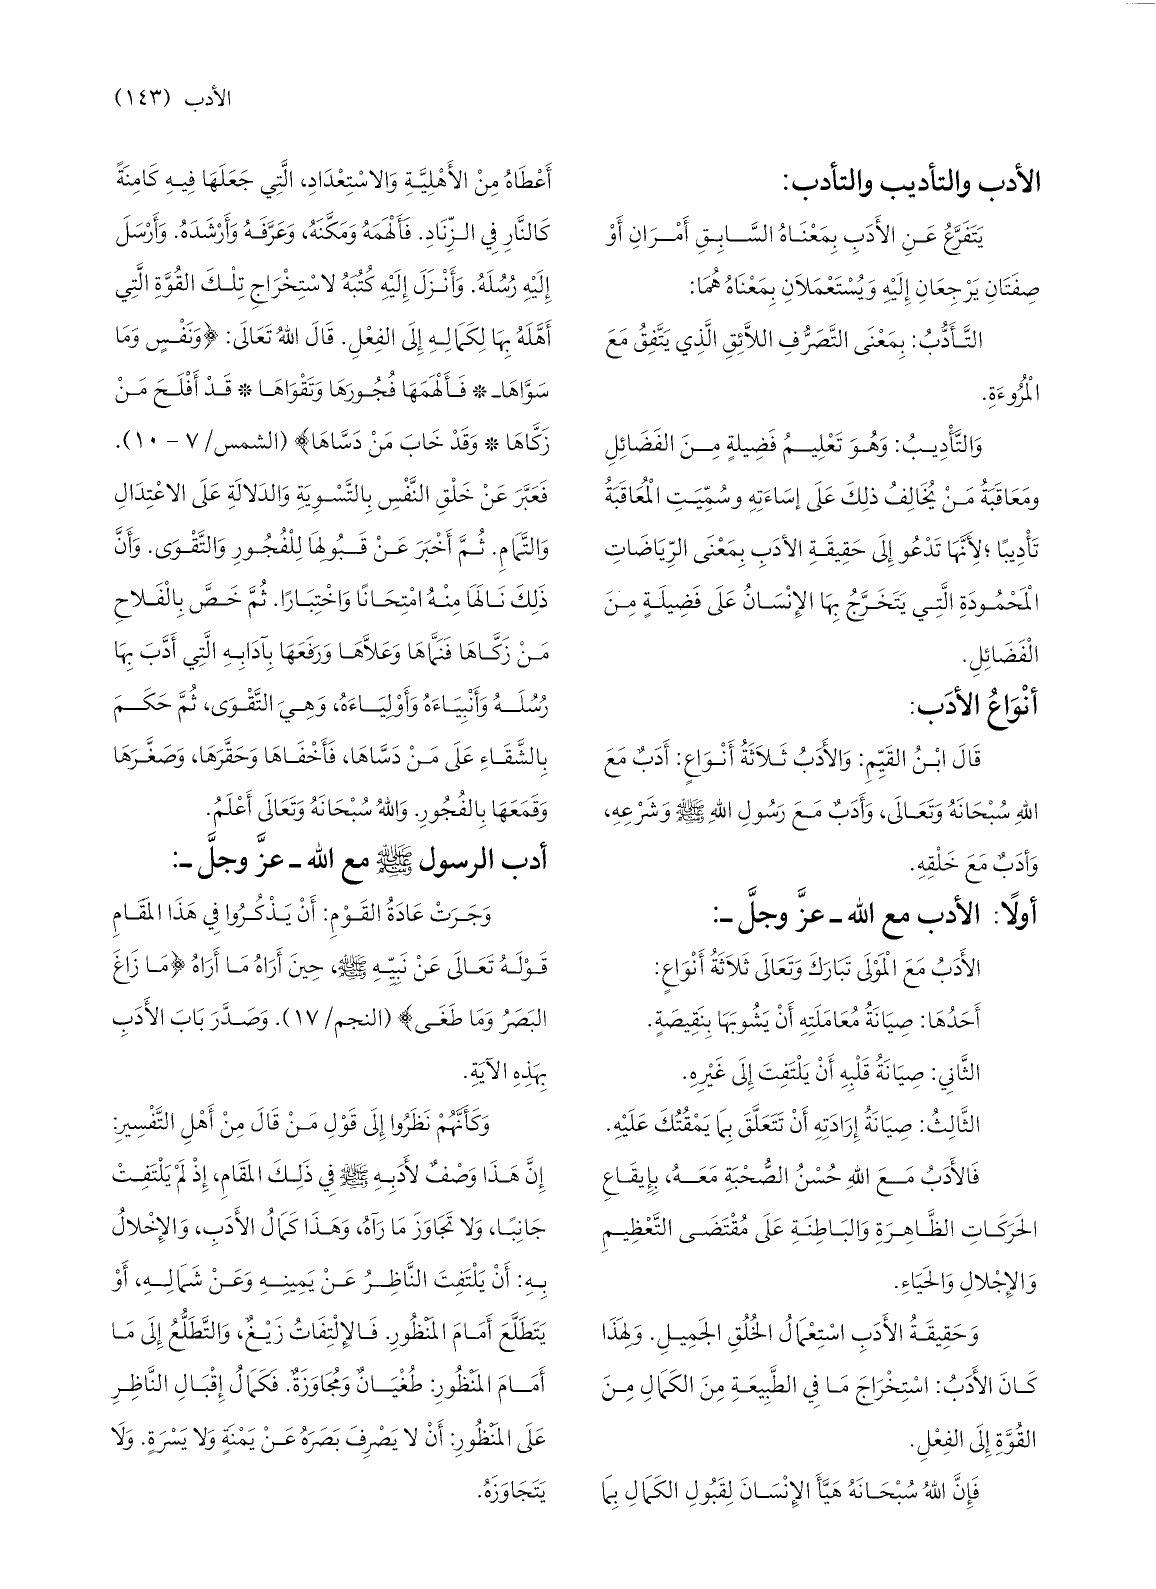 الأدب (١٤٣)
الأدب والتأديب والتأدب:
يَتَفَرَّعُ عَنِ الأَدَبِ بِمَعْنَاهُ السَّابِقِ أَمْرَانِ أَوْ
صِفَتَانِ يَرْجِعَانِ إِلَيْهِ وَيُسْتَعْمَلَانِ بِمَعْنَاهُ هُمَا:
التَّأَدُّبُ: بِمَعْنَى التَّصَرُّفِ اللاَّئِقِ الَّذِي يَتَّفِقُ مَعَ
الْمُرُوءَةِ.
وَالتَّأْدِيبُ: وَهُوَ تَعْلِيمُ فَضِيلةٍ مِنَ الفَضَائِلِ
ومَعَاقَبَةُ مَنْ يُخَالِفُ ذلِكَ عَلَى إِسَاءَتِهِ وسُمِّيَتِ الْمُعَاقَبَةُ
تَأْدِيبًا ؛لِأَنَّهَا تَدْعُو إِلَى حَقِيقَةِ الأَدَبِ بِمَعْنَى الرِّيَاضَاتِ
الْمَحْمُودَةِ الَّتِي يَتَخَرَّجُ بِهَا الإِنْسَانُ عَلَى فَضِيلَةٍ مِنَ
الْفَضَائِلِ.
أَنْوَاعُ الأَدَب:
قَالَ ابْنُ القَيِّمِ: وَالأَدَبُ ثَلاَثَةُ أَنْوَاعٍ: أَدَبٌ مَعَ
اللهِ سُبْحَانَهُ وَتَعَالَى، وَأَدَبٌ مَعَ رَسُولِ اللهِ ﷺ وَشَرْعِهِ،
وَأَدَبٌ مَعَ خَلْقِهِ.
أولًا: الأدب مع الله ـ عزَّ وجلَّ ـ:
الأَدَبُ مَعَ الْمَوْلَى تَبَارَكَ وَتَعَالَى ثَلاَثَةُ أَنْوَاعٍ:
أَحَدُهَا: صِيَانَةُ مُعَامَلَتِهِ أَنْ يَشُوبَهَا بِنَقِيصَةٍ.
الثَّانِي: صِيَانَةُ قَلْبِهِ أَنْ يَلْتَفِتَ إِلَى غَيْرِهِ.
الثَّالِثُ: صِيَانَةُ إِرَادَتِهِ أَنْ تَتَعَلَّقَ بِمَا يَمْقُتُكَ عَلَيْهِ.
فَالأَدَبُ مَعَ اللهِ حُسْنُ الصُّحْبَةِ مَعَهُ، بِإِيقَاعِ
الحَرَكَاتِ الظَّاهِرَةِ وَالبَاطِنَةِ عَلَى مُقْتَضَى التَّعْظِيمِ
وَالإِجْلالِ وَالحَيَاءِ.
وَحَقِيقَةُ الأَدَبِ اسْتِعْمَالُ الخُلُقِ الجَمِيلِ. وَلِهَذَا
كَانَ الأَدَبُ: اسْتِخْرَاجَ مَا فِي الطَّبِيعَةِ مِنَ الكَمَالِ مِنَ
القُوَّةِ إِلَى الفِعْلِ.
فَإِنَّ اللهَ سُبْحَانَهُ هَيَّأَ الإِنْسَانَ لِقَبُولِ الكَمَالِ بِمَا
أَعْطَاهُ مِنْ الأَهْلِيَّةِ وَالاسْتِعْدَادِ، الَّتِي جَعَلَهَا فِيهِ كَامِنَةً
كَالنَّارِ فِي الزِّنَادِ. فَأَلْهَمَهُ وَمَكَّنَهُ، وَعَرَّفَهُ وَأَرْشَدَهُ. وَأَرْسَلَ
إِلَيْهِ رُسُلَهُ. وَأَنْزَلَ إِلَيْهِ كُتُبَهُ لاسْتِخْرَاجِ تِلْكَ القُوَّةِ الَّتِي
أَهَّلَهُ بِهَا لِكَمَالِهِ إِلَى الفِعْلِ. قَالَ اللهُ تَعَالَى: ﴿وَنَفْسٍ وَمَا
سَوَّاهَا * فَأَلْهَمَهَا فُجُورَهَا وَتَقْوَاهَا * قَدْ أَفْلَحَ مَنْ
زَكَّاهَا * وَقَدْ خَابَ مَنْ دَسَّاهَا﴾ (الشمس/ ٧ - ١٠).
فَعَبَّرَ عَنْ خَلْقِ النَّفْسِ بِالتَّسْوِيَةِ وَالدَلالَةِ عَلَى الاعْتِدَالِ
وَالتَّمَامِ. ثُمَّ أَخْبَرَ عَنْ قَبُولِهَا لِلْفُجُورِ وَالتَّقْوَى. وَأَنَّ
ذَلِكَ نَالَهَا مِنْهُ امْتِحَانًا وَاخْتِبَارًا. ثُمَّ خَصَّ بِالْفَلَاحِ
مَنْ زَكَّاهَا فَنَمَّاهَا وَعَلاَّهَا وَرَفَعَهَا بِآدَابِهِ الَّتِي أَدَّبَ بِهَا
رُسُلَهُ وَأَنْبِيَاءَهُ وَأَوْلِيَاءَهُ، وَهِيَ التَّقْوَى، ثُمَّ حَكَمَ
بِالشَّقَاءِ عَلَى مَنْ دَسَّاهَا، فَأَخْفَاهَا وَحَقَّرَهَا، وَصَغَّرَهَا
وَقَمَعَهَا بِالفُجُورِ. وَاللهُ سُبْحَانَهُ وَتَعَالَى أَعْلَمُ.
أدب الرسول ﷺ مع الله ـ عزَّ وجلَّ ـ:
وَجَرَتْ عَادَةُ القَوْمِ: أَنْ يَذْكُرُوا فِي هَذَا المَقَامِ
قَوْلَهُ تَعَالَى عَنْ نَبِيِّهِ ﷺ، حِينَ أَرَاهُ مَا أَرَاهُ ﴿مَا زَاغَ
البَصَرُ وَمَا طَغَى﴾ (النجم/ ١٧). وَصَدَّرَ بَابَ الأَدَبِ
بِهَذِهِ الآيَةِ.
وَكَأَنَّهُمْ نَظَرُوا إِلَى قَوْلِ مَنْ قَالَ مِنْ أَهْلِ التَّفْسِيرِ:
إِنَّ هَذَا وَصْفٌ لأَدَبِهِ ﷺ فِي ذَلِكَ المَقَامِ، إِذْ لَمْ يَلْتَفِتْ
جَانِبًا، وَلا تَجَاوَزَ مَا رَآهُ، وَهَذَا كَمَالُ الأَدَبِ، وَالإِخْلالُ
بِهِ: أَنْ يَلْتَفِتَ النَّاظِرُ عَنْ يَمِينِهِ وَعَنْ شَمَالِهِ، أَوْ
يَتَطَلَّعَ أَمَامَ المَنْظُورِ. فَالإِلْتِفَاتُ زَيْغٌ، وَالتَّطَلُّعُ إِلَى مَا
أَمَامَ المَنْظُورِ: طُغْيَانٌ وَمُجَاوَزَةٌ. فَكَمَالُ إِقْبَالِ النَّاظِرِ
عَلَى المَنْظُورِ: أَنْ لا يَصْرِفَ بَصَرَهُ عَنْ يَمْنَةٍ وَلا يَسْرَةٍ. وَلَا
يَتَجَاوَزَهُ.